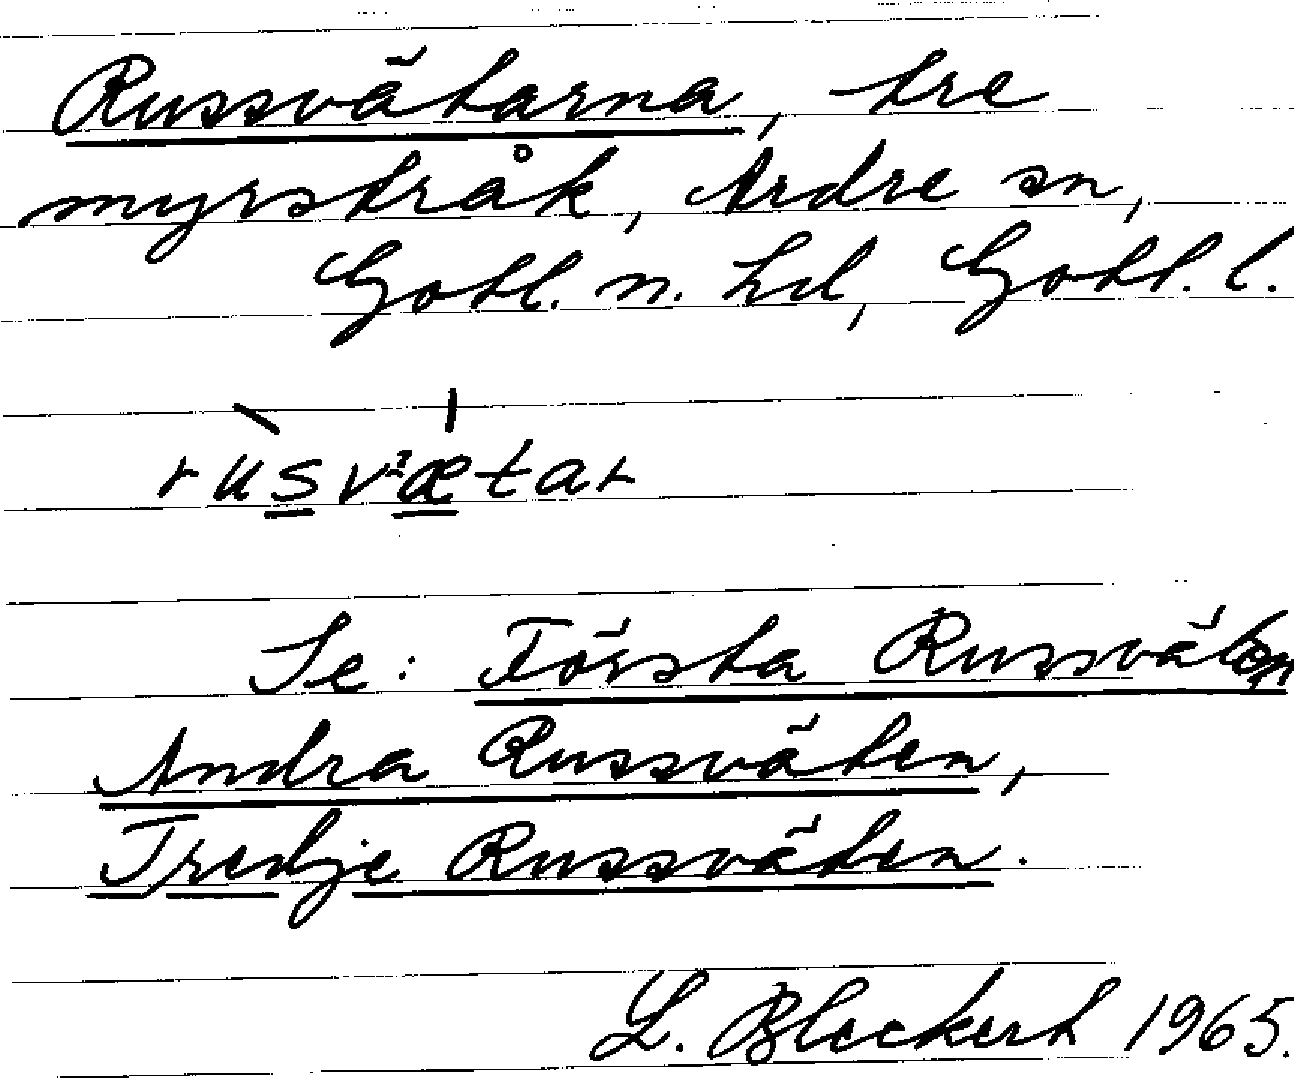 Russvätarna, tre
myrstråk, Ardre sn,
Gotl. n. hd, Gotl. l.
rusvætar
Se: Första Russväten
Andra Russväten,
Tredje Russväten.
L. Bleckert 1965.